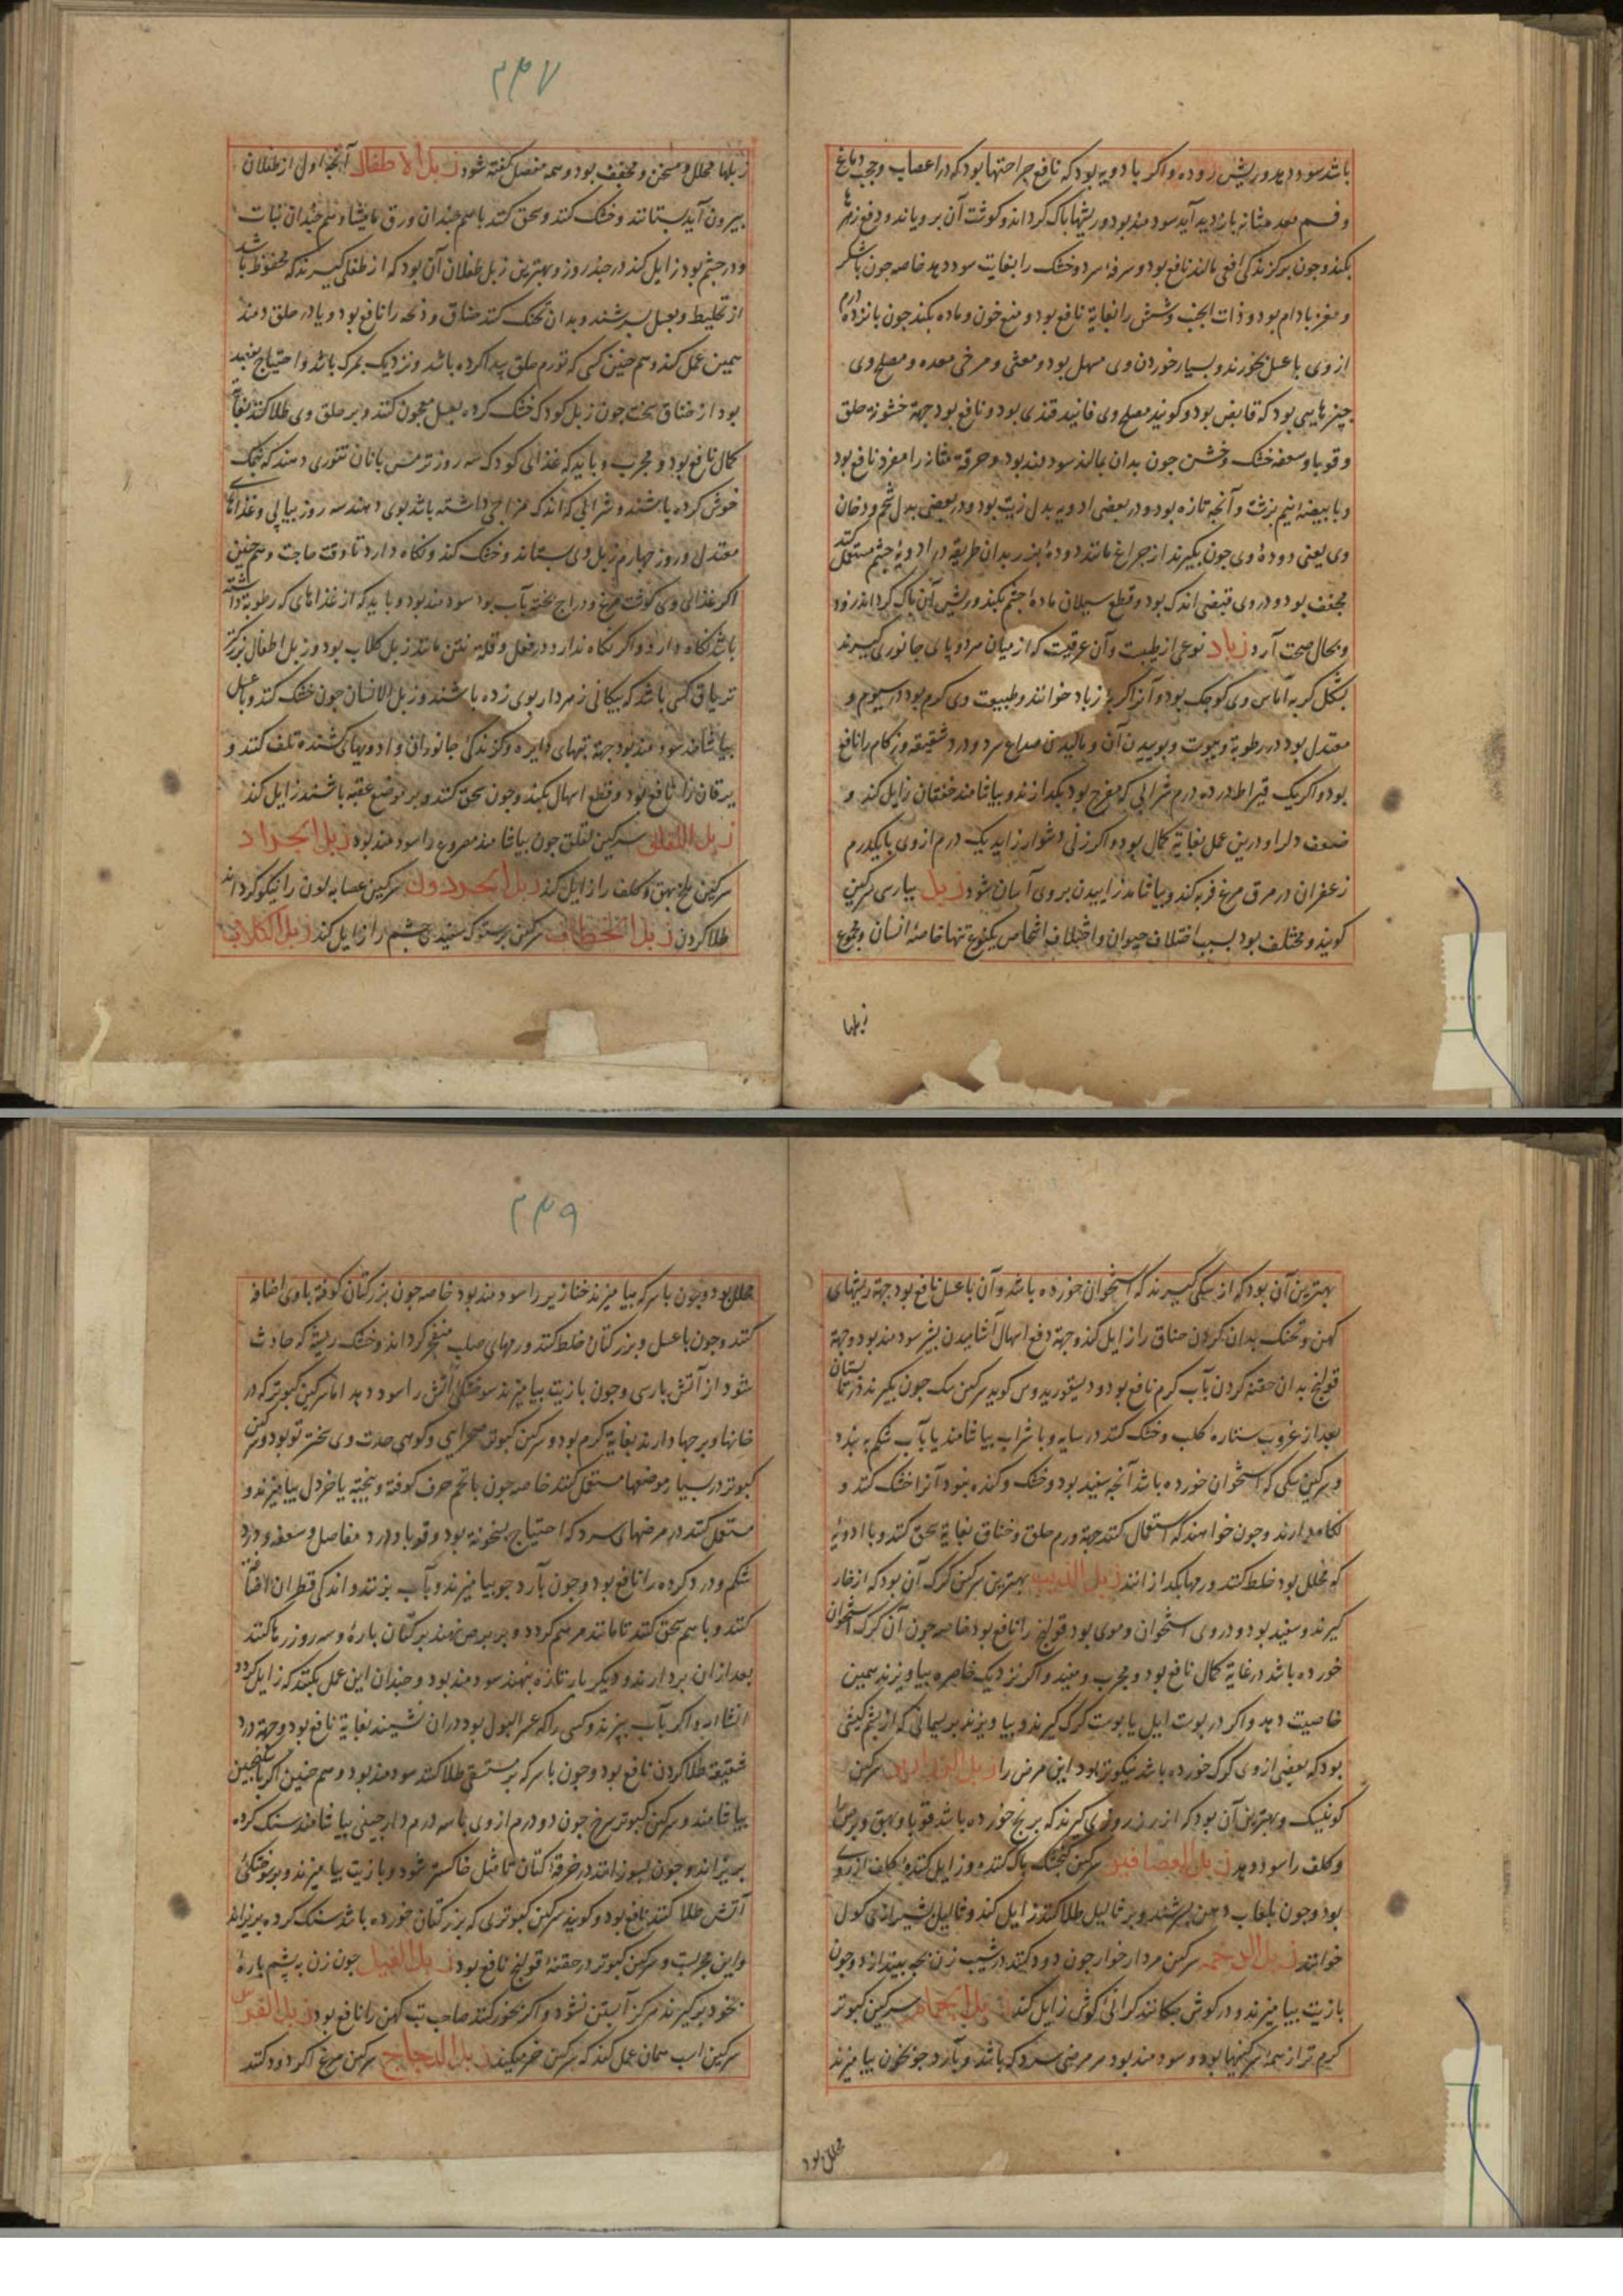 باشد سود دهد و ریش روده و اگر با ادویه بود که نافع جراحتها بود که در اعصاب و حجب دماغ
و فم معده مثانه با دید آید سودمند بود و ریشها پاک کرداند و کوشت آن برویاند و دفع زهر
بکند و چون بر کزندکی افعی مالند نافع بود و سرفه سرد و خشک را بغایت سود دهد خاصه چون با شکر
و مغز بادام بود و ذات الجنب و شش را بغایة نافع بود و منع خون و ماده بکند چون پانزده درم
از وی با عسل بخورند و بسیار خوردن وی مسهل بود و مغثی و مرخی معده و مصلح وی
چیزهایی بود که قابض بود و کویند مصلح وی فانید قندی بود و نافع بود جهة خشونة حلق
و قوبا و سعفه خشک و خشن چون بدان بمالند سودمند بود و حرقة مثانه را مفرد نافع بود
و با بیضه نیم برشت و آنچه تازه بود و در بعضی ادویه بدل زیت بود و در بعضی بدل شحم و دخان
وی یعنی دوده وی چون بکیرند از چراغ مانند دوده بزر بدان طریقه در ادویه چشم مستعمل کنند
مجفف بود و در وی قبضی اندک بود و قطع سیلان ماده چشم بکند و ریش آن پاک کرداند زود
و بحال صحت آرد زباد نوعی از طیبست و آن عرقیست که از میان هر دو پای جانوری کیرند
بشکل کربه اما سر وی کوچک بود و آنرا کربه زباد خوانند و طبیعت وی کرم بود در سیوم و
معتدل بود در رطوبة و یبوست و بوییدن آن و مالیدن صداع سرد و درد شقیقه و زکام را نافع
بود و اکر یک قیراط در ده درم شرابی که مفرح بود بکدازند و بیاشامند خفقان زایل کند و
ضعف دل را و درین عمل بغایة کمال بود و اکر زنی دشوار زاید یک درم از وی با یکدرم
زعفران در مرق مرغ فربه کند و بیاشامد زاییدن بر وی آسان شود زبل بپارسی سرکین
کویند و مختلف بود بسبب اختلاف حیوان و اختلاف اشخاص یکنوع تنها خاصه انسان و مجموع
زبلها
۲۴۷
زبلها محلل و مسخن و مجفف بود و همه مفصل کفته شود زبل الاطفال آنچه اول از طفلان
بیرون آید بستانند و خشک کنند و سحق کنند با هم چندان ورق مامیشا و هم چندان نبات
و در چشم بود زایل کند در چند روز و بهترین زبل طفلان آن بود که از طفلی کیرند که محفوظ باشد
از تخلیط و بعسل بسرشند و بدان تحنک کنند خناق و ذبحه را نافع بود و یا در حلق دمند
همین عمل کند و هم چنین کسی که تورم حلق پیدا کرده باشد و نزدیک بمرک باشد و احتیاج بفصد
بود از خناق سخت چون زبل کودک خشک کرده بعسل معجون کنند و بر حلق وی طلا کنند بغایة
کمال نافع بود و مجرب و باید که غذای کودک سه روز ترمس با نان تنوری دهند که نمک
خوش کرده باشند و شرابی که اندک مزاجی داشته باشد بوی دهند سه روز پیاپی و غذاهای
معتدل و روز چهارم زبل وی بستانند و خشک کند و نکاه دارد تا وقت حاجت و هم چنین
اکر غذای وی کوشت مرغ و دراج پخته بآب بود سودمند بود و باید که از غذاهای که رطوبة داشته
باشد نکاه دارد و اکر نکاه ندارد در فعل و قلة نتن مانند زبل کلاب بود و زبل اطفال بزرکتر
تریاق کسی باشد که پیکانی زهردار بوی زده باشند و زبل الانسان چون خشک کنند و با عسل
بیاشامند سودمند بود جهة تبهای دایره و کزندکی جانوران و ادویهای کشنده تلف کنند و
یرقان را نافع بود و قطع اسهال بکند و چون سحق کنند و بر موضع عقبه باشند زایل کند
زبل اللقلق سرکین لقلق چون بیاشامند مصروع را سودمند بود زبل الجراد
سرکین ملخ بهق و کلف را زایل کند زبل الحردون سرکین عصابه لون را نیکو کرداند
طلا کردن زبل الخطاف سرکین پرستوک سفیدی چشم را زایل کند زبل الکلاب
بهترین آن بود که از سکی کیرند که استخوان خورده باشد و آن با عسل نافع بود جهة ریشهای
کهن و تحنک بدان کردن خناق را زایل کند و جهة دفع اسهال آشامیدن بشیر سودمند بود و جهة
قولنج بدان حقنه کردن بآب کرم نافع بود و دیسقوریدوس کوید سرکین سک چون بکیرند در تابستان
بعد از غروب ستاره کلب و خشک کنند در سایه و با شراب بیاشامند یا بآب شکم ببندد
و سرکین سکی که استخوان خورده باشد آنچه سفید بود و خشک و کنده نبود آنرا خشک کنند و
نکاه دارند و چون خواهند که استعمال کنند جهة ورم حلق و خناق بغایة سحق کنند و با ادویه
که محلل بود خلط کنند ورمها بکدازانند زبل الذیب بهترین سرکین کرک آن بود که از خار
کیرند و سفید بود و در وی استخوان و موی بود قولنج را نافع بود خاصه چون آن کرک استخوان
خورده باشد در غایة کمال نافع بود و مجرب و مفید و اکر نزدیک خاصره بیاویزند همین
خاصیت دهد و اکر در پوست ایل یا پوست کرک کیرند و بیاویزند بریسمانی که از پشم کبشی
بود که بعضی از وی کرک خورده باشد نیکوتر بود این مرض را زبل الزرازیر سرکین
کونیک و بهترین آن بود که از زرزوری کیرند که برنج خورده باشد قوبا و بهق و برص را
و کلف را سود دهد زبل العصافیر سرکین کنجشک پاک کننده و زایل کننده کلف از روی
بود و چون بلعاب دهن بسرشند و بر ثالیل طلا کنند زایل کند و ثالیل بشیرازی کول
خوانند زبل الرخمه سرکین مردارخوار چون دود کنند در شیب زن بچه بیندازد و چون
با زیت بیامیزند و در کوش چکانند کرانی کوش زایل کند زبل الحمام سرکین کبوتر
کرم تر از همه سرکینها بود و سودمند بود هر مرضی سرد که باشد و با آرد جو چون بیامیزند
محلل بود
۲۴۹
محلل بود و چون با سرکه بیامیزند خنازیر را سودمند بود خاصه چون بزر کتان کوفته با وی اضافه
کنند و چون با عسل و بزر کتان خلط کنند ورمهای صلب منفجر کرداند و خشک ریشه که حادث
شود از آتش پارسی و چون با زیت بیامیزند سوختکی آتش را سود دهد اما سرکین کبوتر که در
خانها و برجها دارند بغایة کرم بود و سرکین کبوتر صحرایی و کوهی حدت وی سخت تر بود و سرکین
کبوتر در بسیار موضعها مستعمل کنند خاصه چون با تخم حرف کوفته و بیخته یا خردل بیامیزند و
مستعمل کنند در مرضهای سرد که احتیاج بسخونه بود و قوبا و درد مفاصل و سعفه و درد
شکم و درد کرده را نافع بود و چون با آرد جو بیامیزند و بآب بپزند و اندکی قطران اضافة
کنند و با هم سحق کنند تا مانند مرهم کردد و بر برص نهند بر کتان پاره و سه روز رها کنند
بعد از ان بردارند و دیکر بار تازه بنهند سودمند بود و چندان این عمل بکنند که زایل کردد
انشاالله و اکر بآب بپزند و کسی را که عسر البول بود در ان نشیند بغایة نافع بود و جهة درد
شقیقه طلا کردن نافع بود و چون با سرکه بر مستسقی طلا کنند سودمند بود و هم چنین اکر با سکنجبین
بیاشامند و سرکین کبوتر سرخ چون دو درم از وی با سه درم دارچینی بیاشامند سنک کرده
بریزاند و چون بسوزانند در خرقه کتان تا مثل خاکستر شود و با زیت بیامیزند و بر سوختکی
آتش طلا کنند نافع بود و کویند سرکین کبوتری که بزر کتان خورده باشد سنک کرده بریزاند
و این مجربست و سرکین کبوتر در حقنه قولنج نافع بود زبل الفیل چون زن به پشم پاره
بخود برکیرند هرکز آبستن نشود و اکر بخور کنند صاحب تب کهن را نافع بود زبل الفرس
سرکین اسب همان عمل کند که سرکین خر میکند زبل الدجاج سرکین مرغ اکر دود کنند